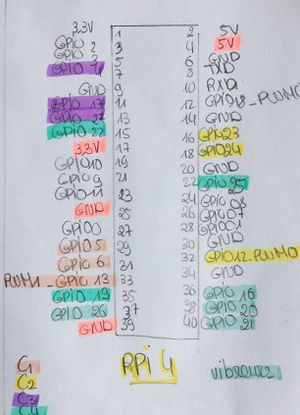 3.3V 1 2 5V
GPIO 2 3 4 5V
GPIO 3 5 6 GND
GPIO 4 7 8 TXD
GND 9 10 RXD
GPIO 17 11 12 GPIO18_PWM0
GPIO 27 13 14 GND
GPIO 22 15 16 GPIO23
3.3V 17 18 GPIO24
GPIO10 19 20 GND
GPIO 9 21 22 GPIO 25
GPIO 11 23 24 GPIO 08
GND 25 26 GPIO07
GPIO0 27 28 GPIO01
GPIO5 29 30 GND
GPIO 6 31 32 GPIO12_PWM0
PWM1_GPIO 13 33 34 GND
GPIO 19 35 36 GPIO 16
GPIO 26 37 38 GPIO 20
GND 39 40 GPIO 21
C1 RPi 4
C2
C3
C4